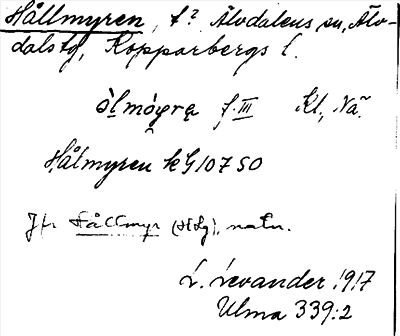 Hållmyren, f? Älvdalens sn, Älv-
dalstg, Kopparbergs l.
f. III Kl., Nä.
Hålmyren kG 107 SO
Jfr Hållmyr (HLg), natn.
L. Levander 1917
Ulma 339:2